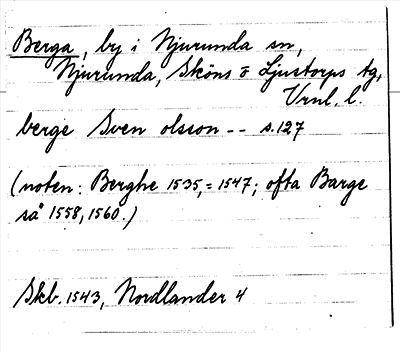 Berga, by i Njurunda sn,
Njurunda, Sköns o Ljustorps tg,
Vrnl. l.
berge Sven olsson -- s.127
(noten: Berghe 1535, = 1547; ofta Barge
så 1558, 1560.)
Skb. 1543, Nordlander 4